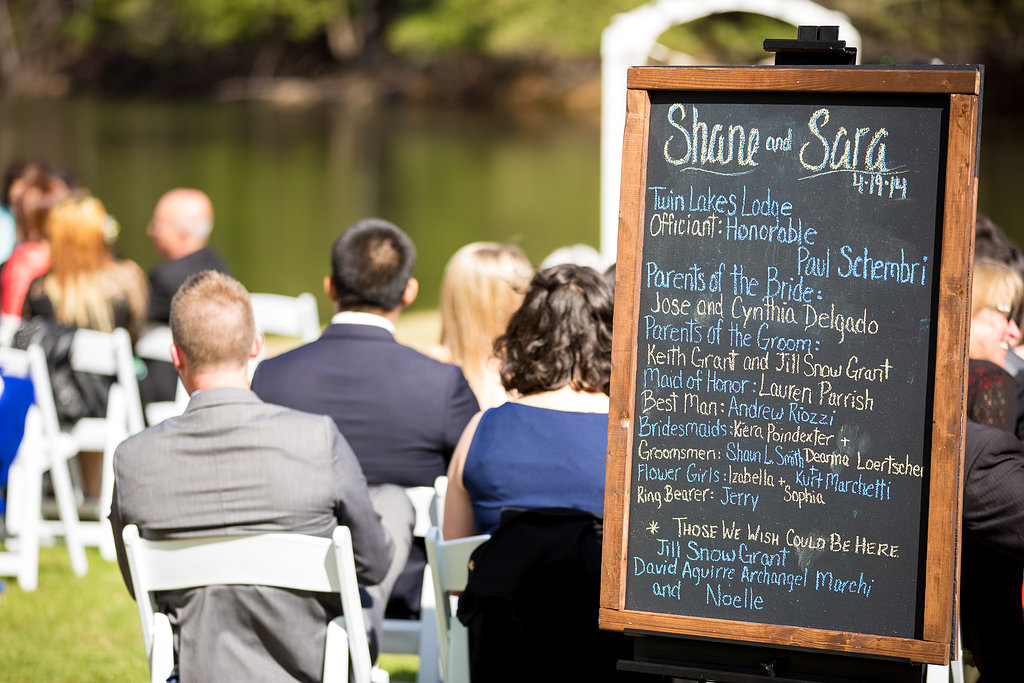 Shane and Sara
4·19·14
Twin Lakes Lodge
Officiant: Honorable
Paul Schembri
Parents of the Bride:
Jose and Cynthia Delgado
Parents of the Groom:
Keith Grant and Jill Snow Grant
Maid of Honor: Lauren Parrish
Best Man: Andrew Riozzi
Bridesmaids: Kiera Poindexter +
Deanna Loertscher
Groomsmen: Shaun L. Smith
+ Kurt Marchetti
Flower Girls: Izabella
Sophia
Ring Bearer: Jerry
* Those We Wish Could Be Here
Jill Snow Grant
David Aguirre Archangel Marchi
and Noelle